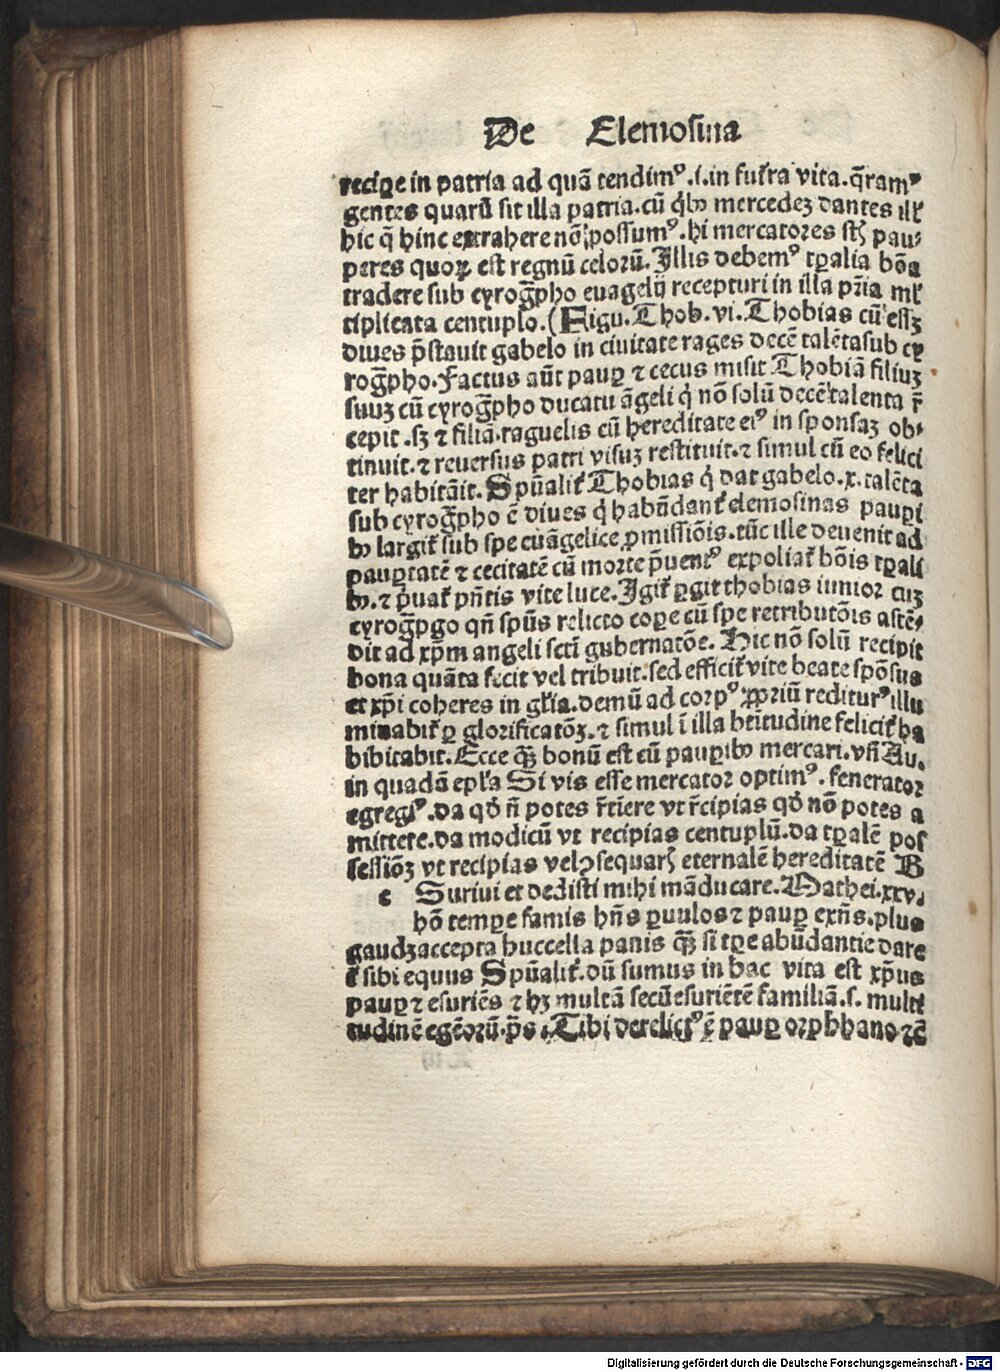 De Elemosina
recipe in patria ad quā tendimꝰ .i. in futͬra vita. q̄ramꝰ
gentes quarū sit illa patria. cū qͥbꝫ mercedeꝫ dantes illͥ
hic q̄ hinc extrahere nō possumꝰ. hi mercatores st̄ pau⸗
peres quoꝝ est regnū celorū. Illis debemꝰ tꝑalia bōa
tradere sub cyrog̅pho euāgelij recepturi in illa pr̄ia ml̄
tiplicata centuplo. (Figu. Thob. vi. Thobias cū essꝫ
diues p̄stauit gabelo in ciuitate rages decē talēta sub cy
rog̅pho. Factus aūt pauꝑ ⁊ cecus misit Thobiā filiuꝫ
suuꝫ cū cyrog̅pho ducatu āgeli qͥ nō solū decē talenta r̄
cepit .sꝫ ⁊ filiā raguelis cū hereditate eiꝰ in sponsaꝫ ob⸗
tinuit. ⁊ reuersus patri visuꝫ restituit. ⁊ simul cū eo felici
ter habitāit. Spūalitͬ Thobias qͥ dat gabelo .x. talēta
sub cyrog̅pho ē diues qͥ habūdantͬ elemosinas pauꝑi
bꝫ largitͬ sub spe euāgelice ꝓmissiōis. tūc ille deuenit ad
pauꝑtatē ⁊ cecitatē cū morte p̄uentꝰ expoliatͬ bōis tꝑali
bꝫ. ⁊ pͥuatͬ pn̄tis vite luce. Igitͬ ꝑgit thobias iunior cuꝫ
cyrog̅pgo qn̄ spūs relicto corꝑe cū spe retributōis ascē⸗
dit ad xp̄m angeli scti gubernatōe. Hic nō solū recipit
bona quāta fecit vel tribuit. sed efficitͬ vite beate spōsus
et xp̄i coheres in gl̄ia. demū ad corpꝰ ꝓpriū rediturꝰ illu
minabitͬ ꝑ glorificatōꝫ. ⁊ simul ī illa btitudine felicitͬ ha
bibitabit. Ecce qꝫ̄ bonū est cū pauꝑibꝫ mercari. vn̄ Au.
in quadā epl̄a Si vis esse mercator optimꝰ. fenerator
egregiꝰ. da qd̓ n̄ potes r̄tiere vt r̄cipias qd̓ nō potes a
mittere. da modicū vt recipias centuplū. da tꝑalē pos
sessiōꝫ vt recipias vel ꝯsequarꝭ eternalē hereditatē B
e Suriui et dedisti mihi māducare. Mathei. xxv.
hō temꝑe famis hn̄s ꝑuulos ⁊ pauꝑ exn̄s. plus
gaudꝫ accepta buccella panis qꝫ̄ si tꝑe abūdantie dare
tͬ sibi equus Spūalitͬ. dū sumus in hac vita est xp̄us
pauꝑ ⁊ esuriēs ⁊ hꝫ multā secū esuriētē familiā. s. multi
tudinē egēorū. p̄s. Tibi derelictꝰ ē pauꝑ orphhano ⁊c̄